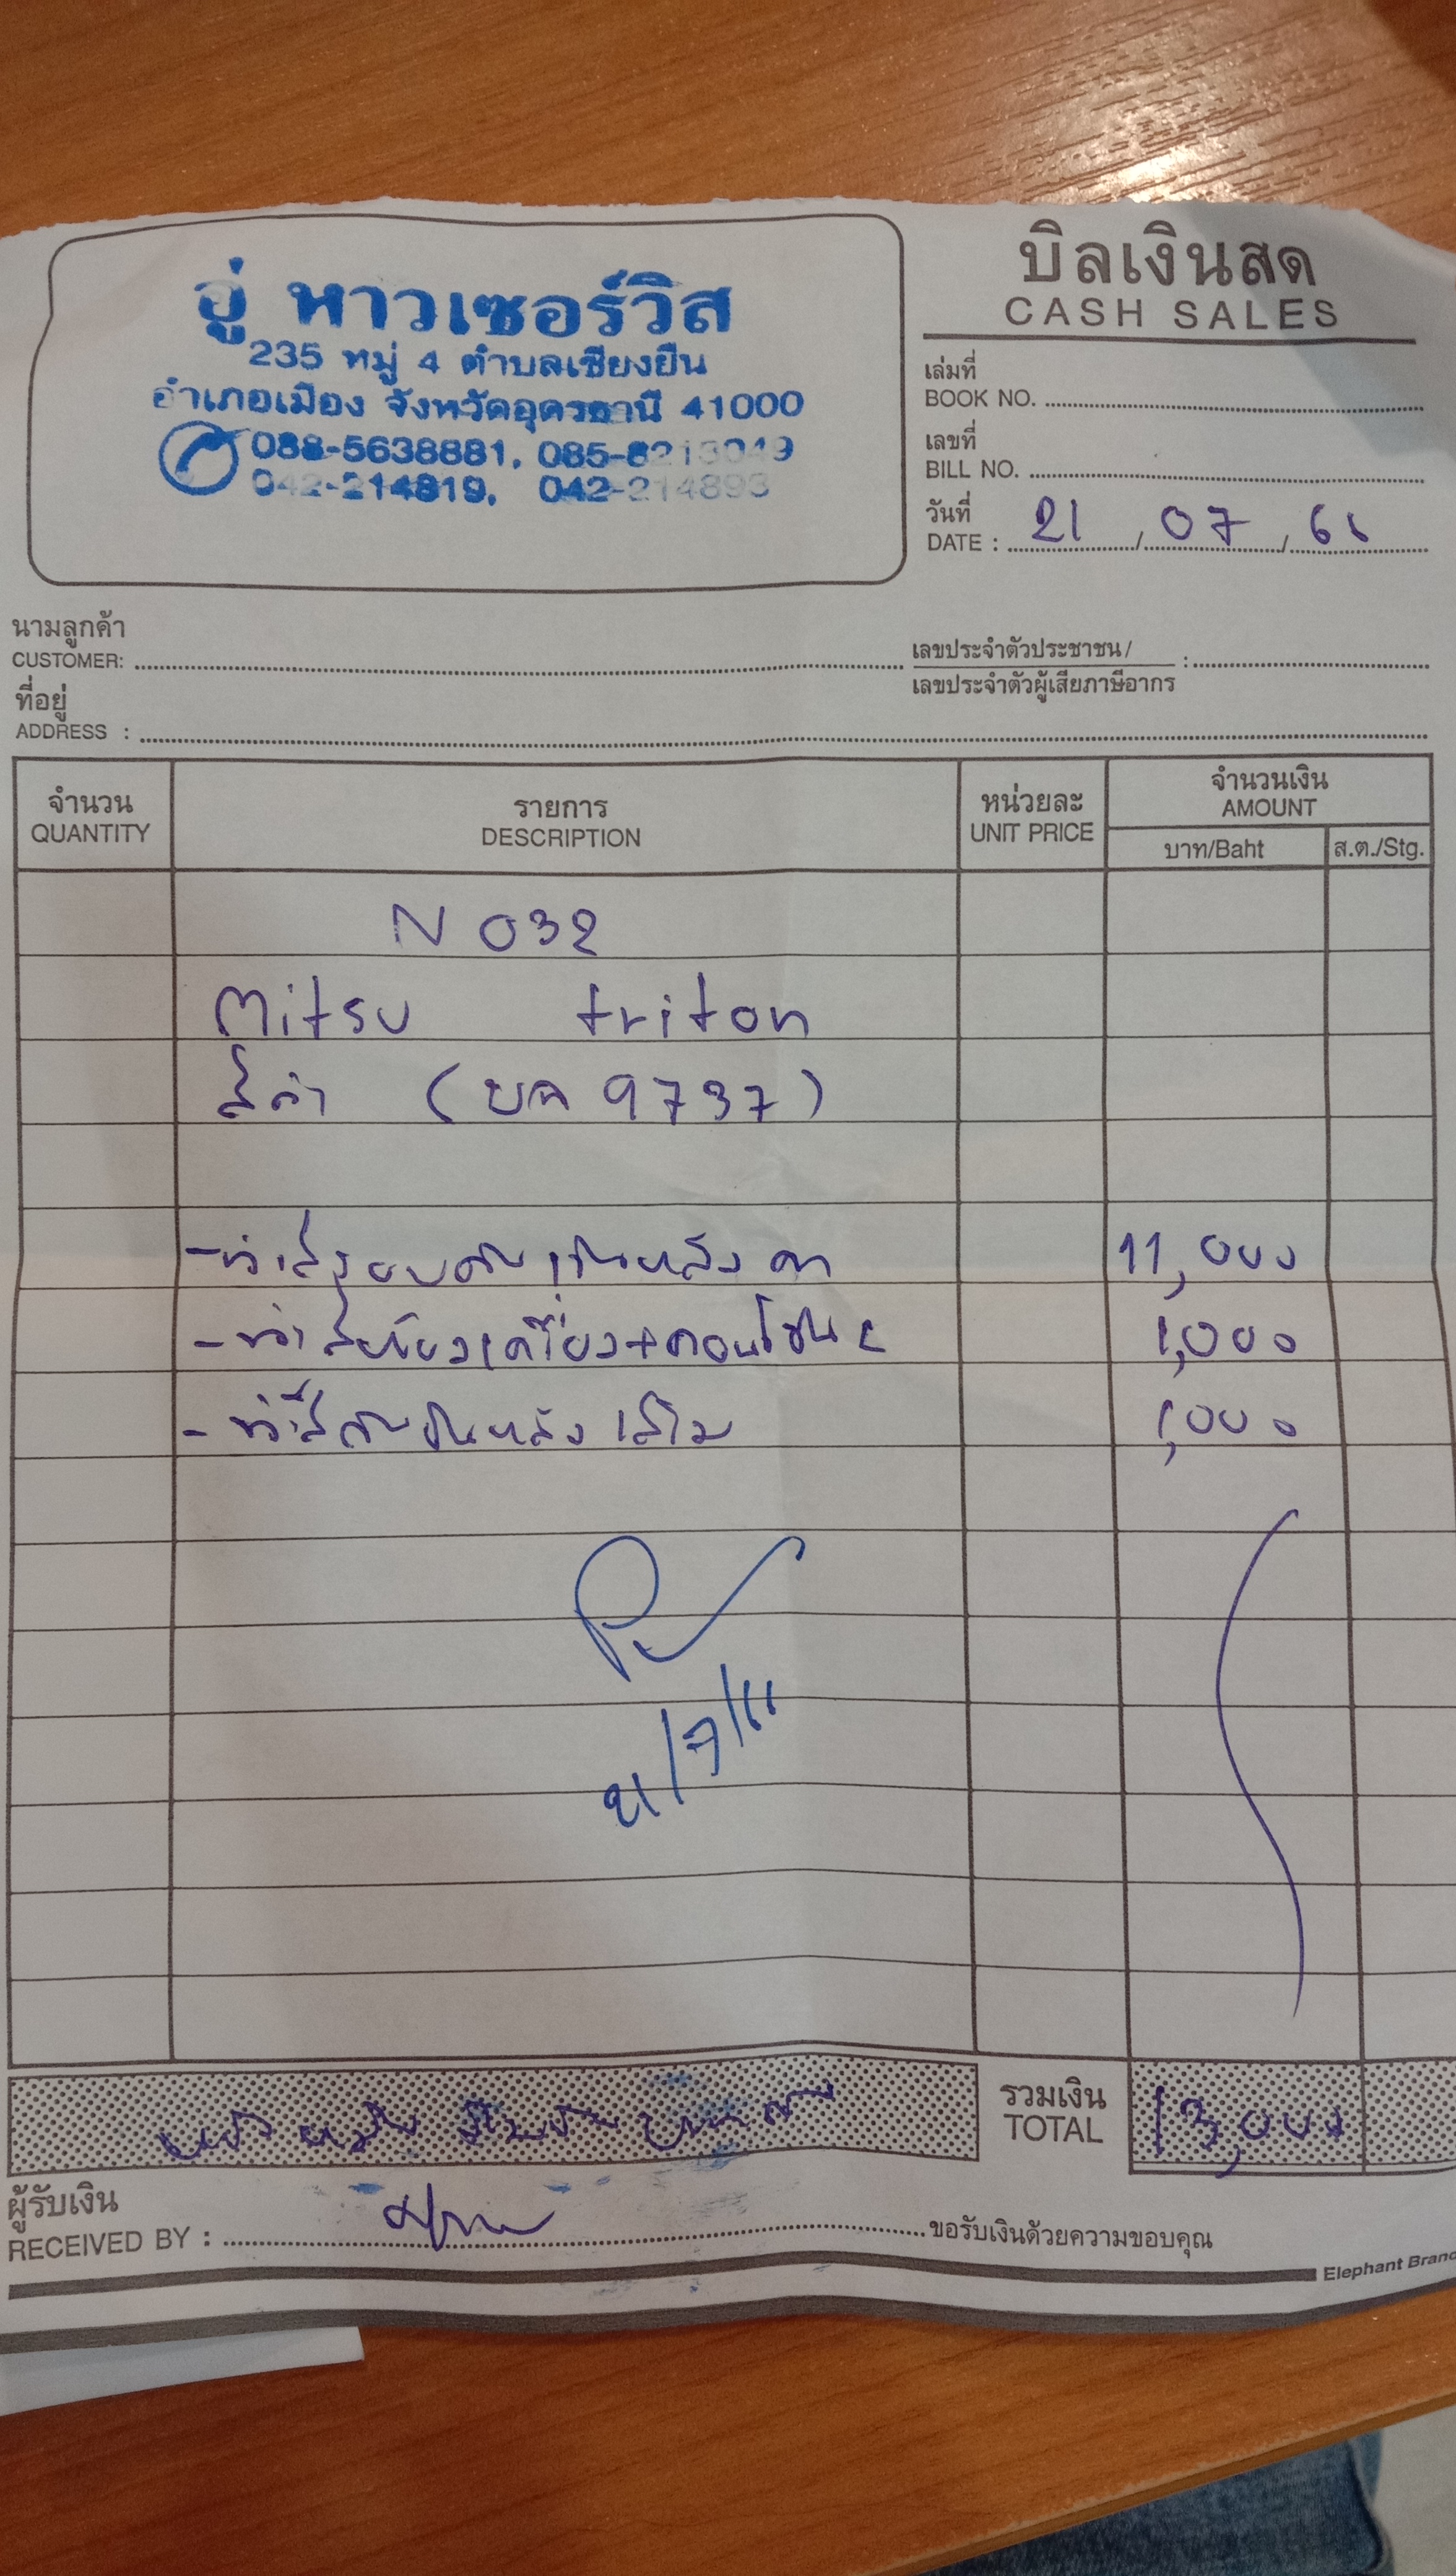 อู่ หาวเซอร์วิส
235 หมู่ 4 ตำบลเชียงยืน
อำเภอเมือง จังหวัดอุดรธานี 41000
088-5638881, 085-
042-214819, 042-214893
บิลเงินสด
CASH SALES
เล่มที่
BOOK NO.
เลขที่
BILL NO.
วันที่
DATE : 21 / 07 / 66
นามลูกค้า
CUSTOMER:
เลขประจำตัวประชาชน /
เลขประจำตัวผู้เสียภาษีอากร :
ที่อยู่
ADDRESS :
จำนวน
QUANTITY
รายการ
DESCRIPTION
หน่วยละ
UNIT PRICE
จำนวนเงิน
AMOUNT
บาท/Baht
ส.ต./Stg.
N 032
Mitsu triton
สีดำ ( 9737)
- ทำสีรอบคัน 11,000
- ทำสี 1,000
- ทำสี 1,000
21/7/66
รวมเงิน
TOTAL
13,000
ผู้รับเงิน
RECEIVED BY :
ขอรับเงินด้วยความขอบคุณ
Elephant Brand